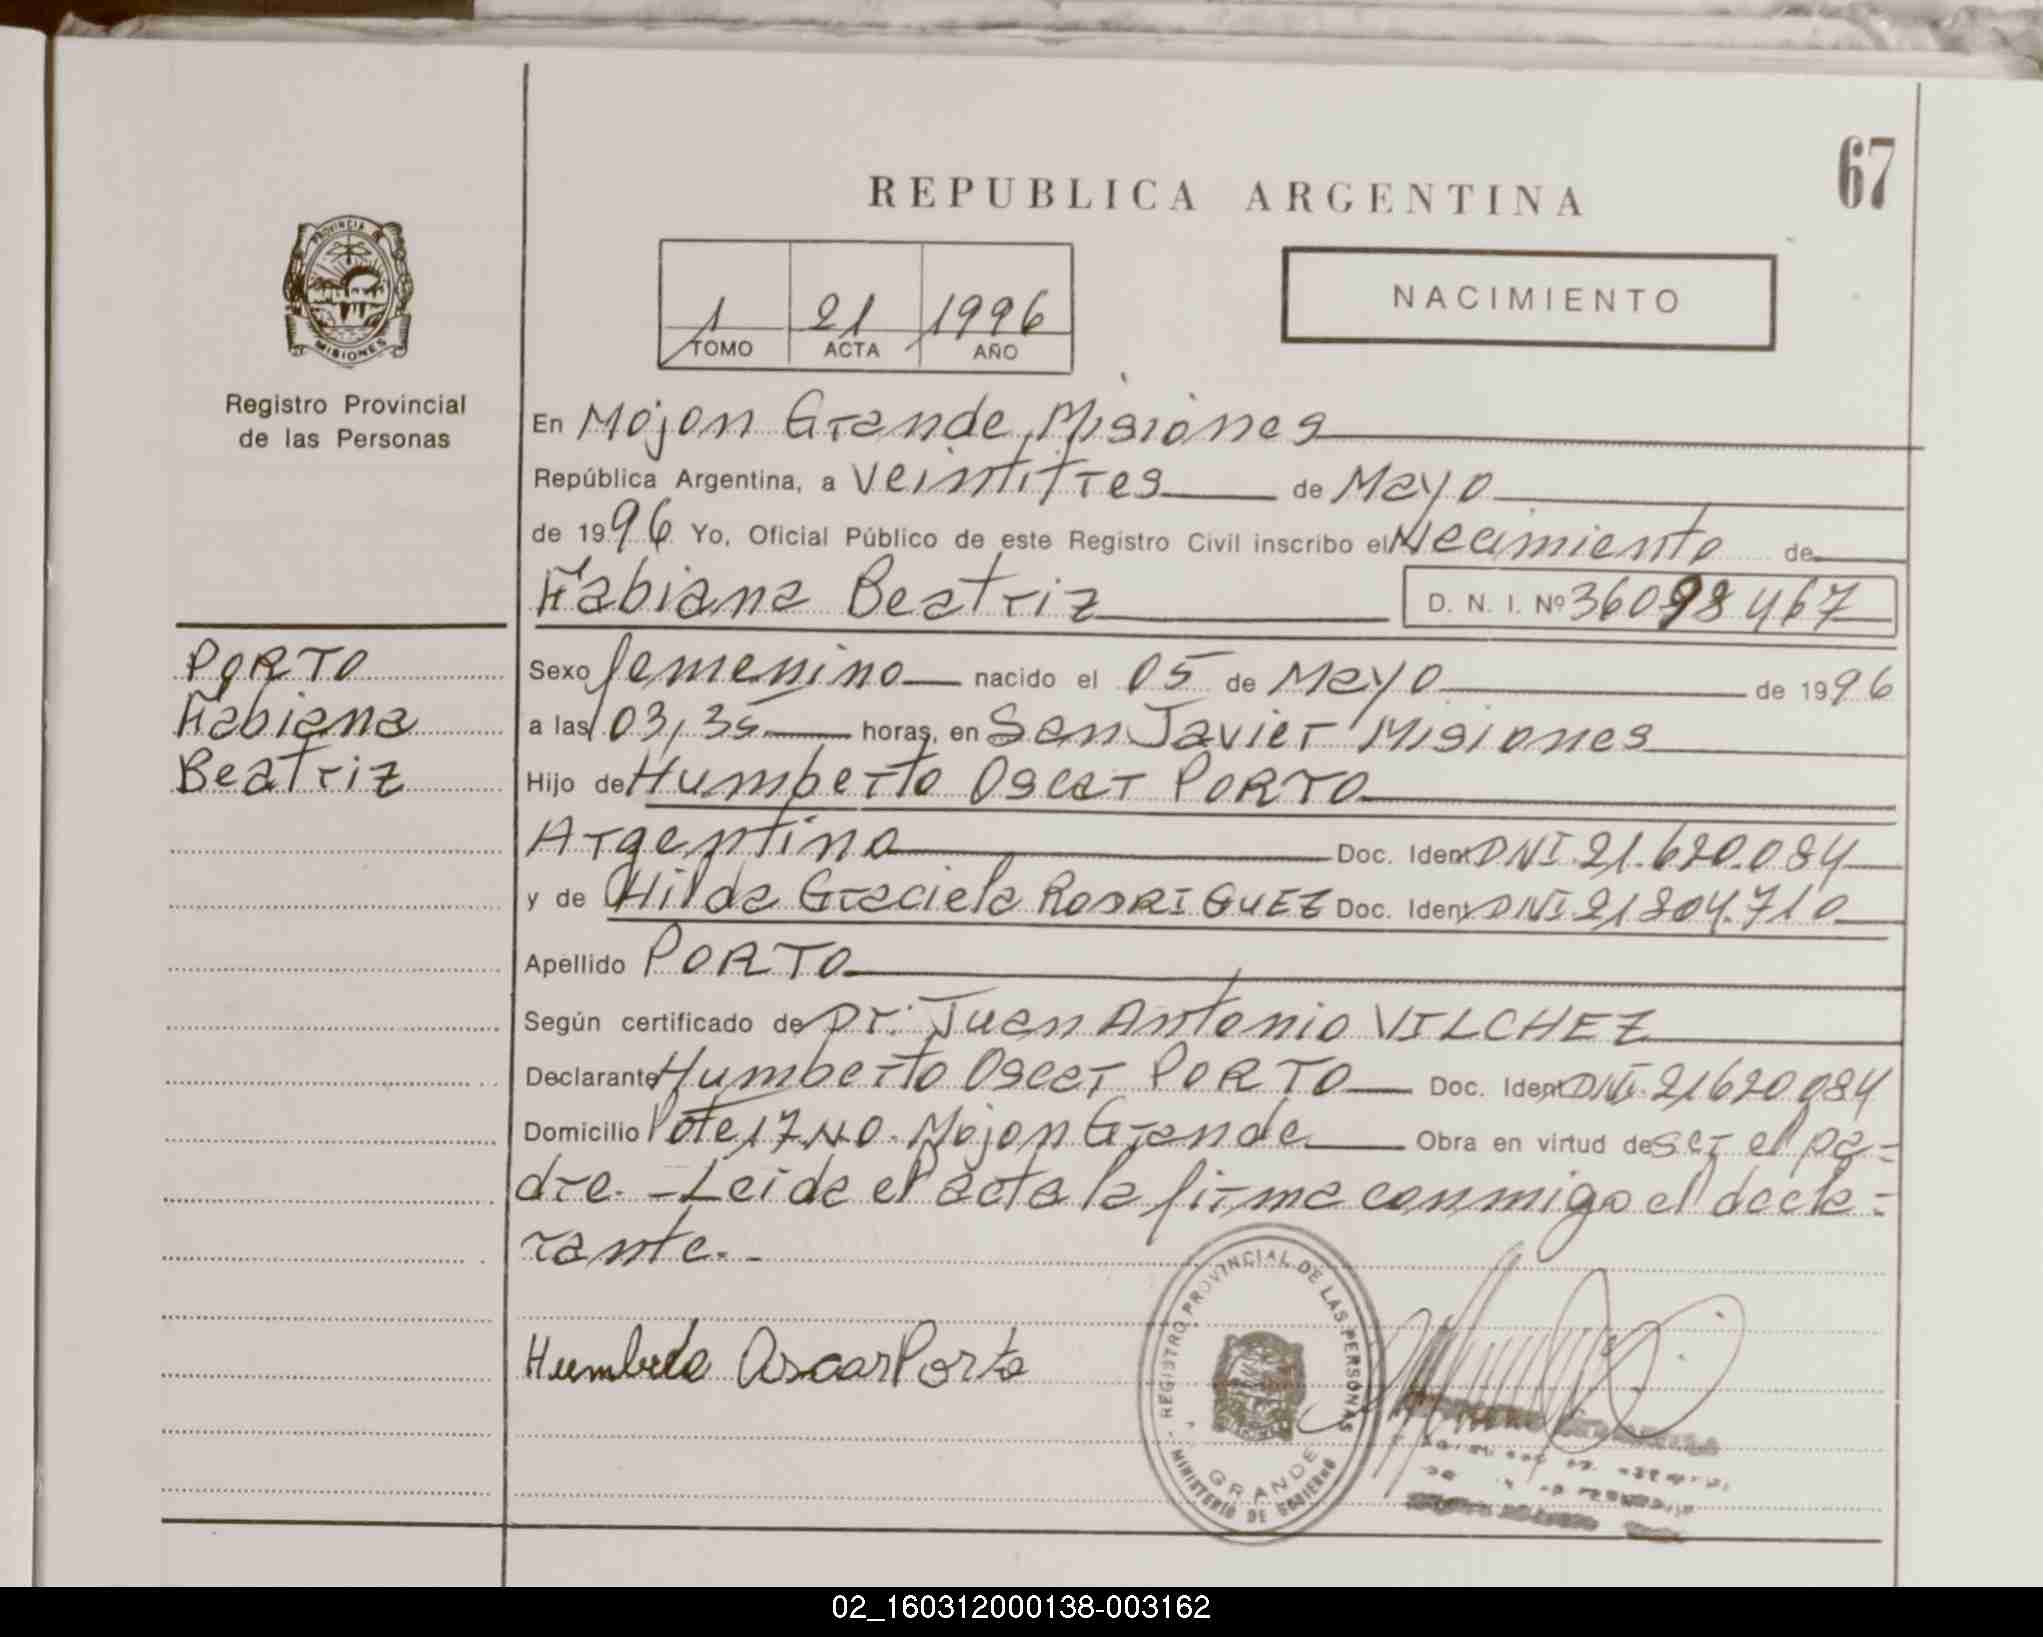 67
REPUBLICA ARGENTINA
PROVINCIA DE
MISIONES
Registro Provincial
de las Personas
1 21 1996
TOMO ACTA AÑO
NACIMIENTO
En Mojon Grande, Misiones
República Argentina, a veintitres de Mayo
de 1996 Yo, Oficial Público de este Registro Civil inscribo el Nacimiento de
Fabiana Beatriz D. N. I. Nº 36098467
PORTO
Fabiana
Beatriz
Sexo femenino nacido el 05 de Mayo de 1996
a las 03,35 horas, en San Javier Misiones
Hijo de Humberto Oscar PORTO
Argentino Doc. Ident. DNI.21.620.084
y de Hilda Graciela RODRIGUEZ Doc. Ident. DNI.21804.710
Apellido PORTO
Según certificado de Dr. Juan Antonio VILCHEZ
Declarante Humberto Oscar PORTO Doc. Ident. DNI.21620084
Domicilio Lote 17.NO. Mojon Grande Obra en virtud de ser el pa=
dre. - Leida el acta la firma conmigo el decla=
rante.-
Humberto Oscar Porto
REGISTRO PROVINCIAL DE LAS PERSONAS
GRANDE
MINISTERIO DE GOBIERNO
02_160312000138-003162